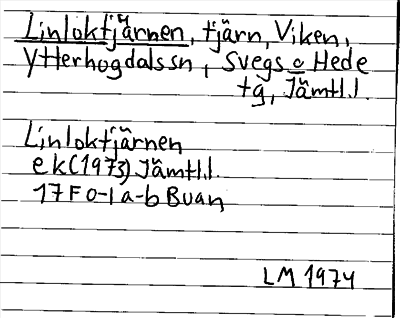 Linloktjärnen, tjärn, Viken,
Ytterhogdals sn, Svegs o Hede
tg, Jämtl.l.
Linloktjärnen
ek(1973) Jämtl.l.
17F 0-1 a-b Buan
LM 1974